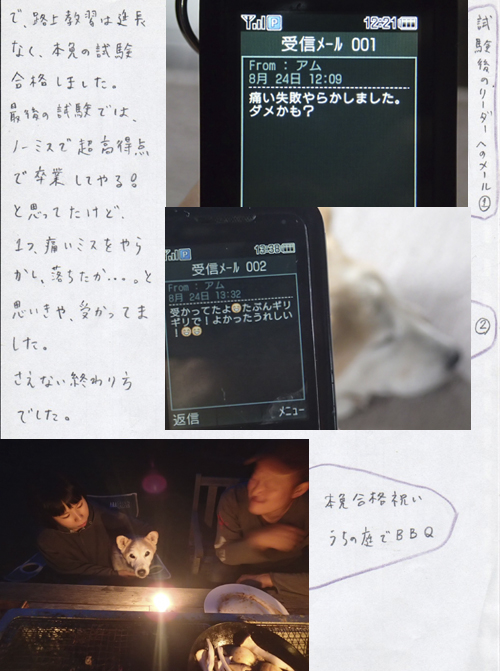 で、路上教習は延長
なく、本免の試験
合格しました。
最後の試験では、
ノーミスで超高得点
で卒業してやる!
と思ってたけど、
1つ、痛いミスをやら
かし、落ちたか・・・。と
思いきや、受かってま
した。
さえない終わり方
でした。
試験後のリーダーへのメール①
12:21
受信ﾒｰﾙ 001
From : アム
8月 24日 12:09
痛い失敗やらかしました。
ダメかも?
②
13:38
受信ﾒｰﾙ 002
From : アム
8月 24日 13:32
受かってたよたぶんギリ
ギリで!よかったうれしい
!
返信
ﾒﾆｭｰ
本免合格祝い
うちの庭でBBQ